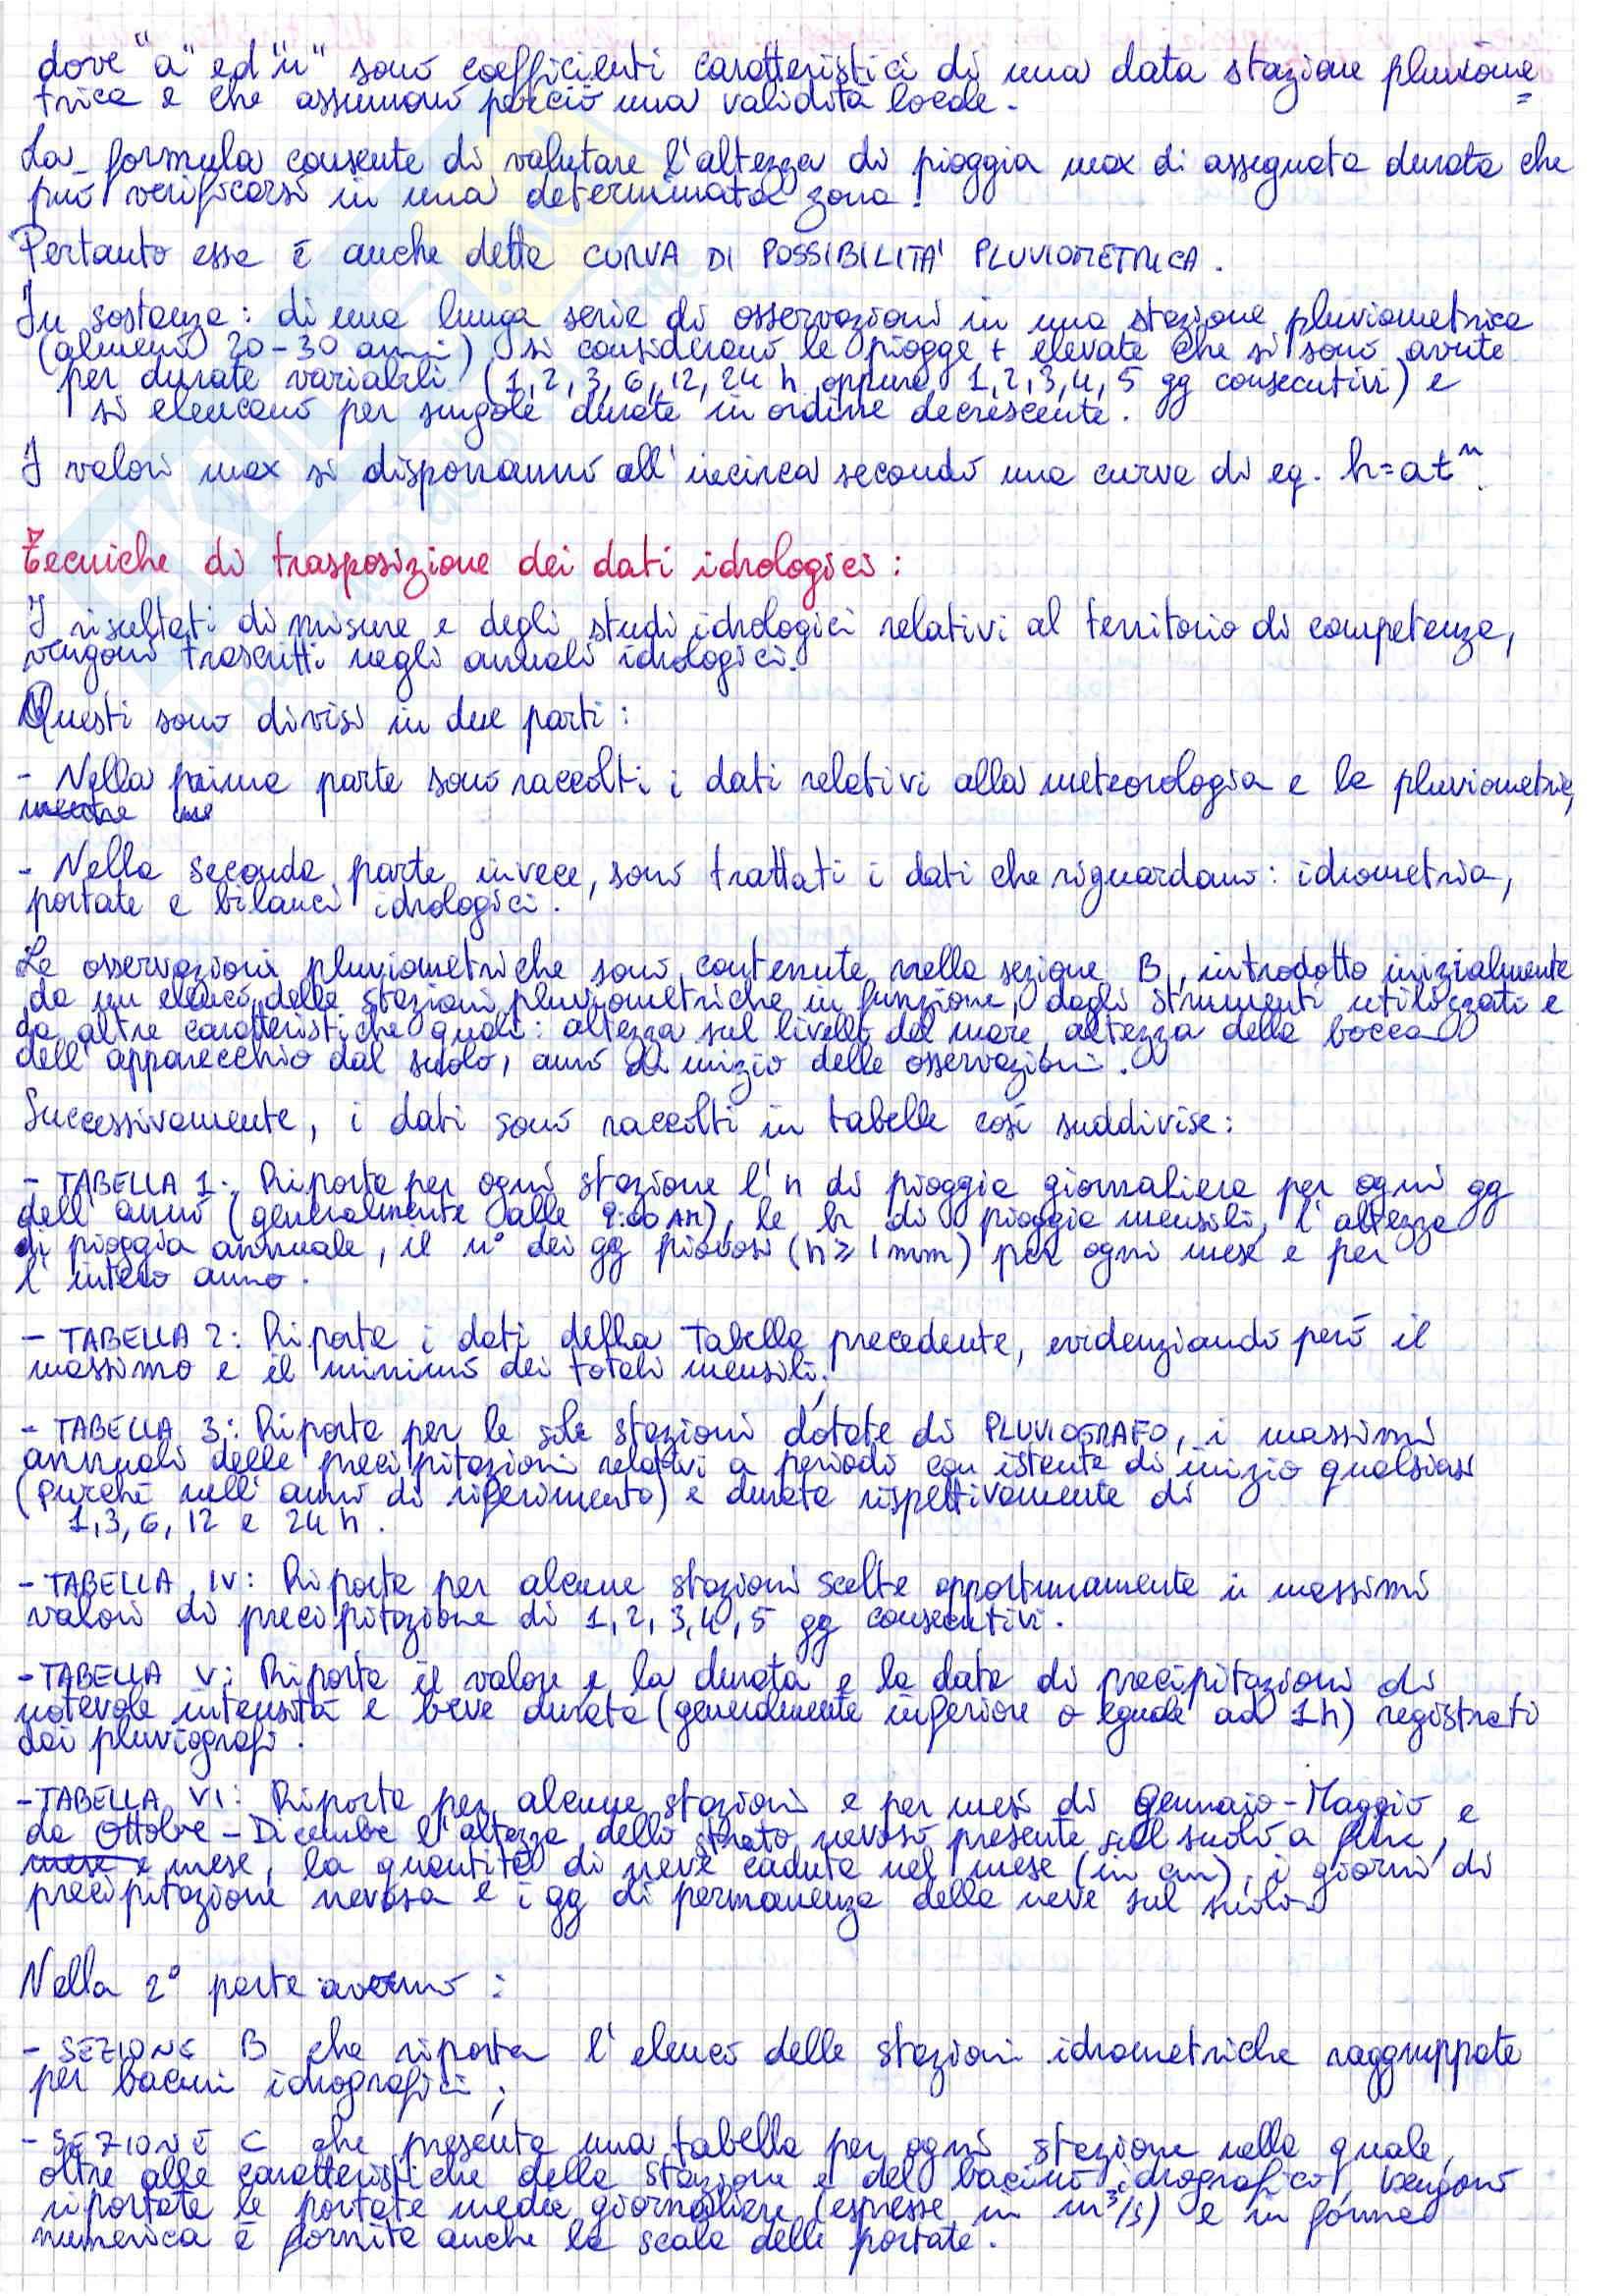 dove "a" ed "n" sono coefficienti caratteristici di una data stazione pluviome=
trica e che assumono perciò una validità locale.
La formula consente di valutare l'altezza di pioggia max di assegnata durata che
può verificarsi in una determinata zona!
Pertanto essa è anche detta CURVA DI POSSIBILITA' PLUVIOMETRICA.
In sostanza: di una lunga serie di osservazioni in una stazione pluviometrica
(almeno 20-30 anni) si considerano le piogge + elevate che si sono avute
per durate variabili (1,2,3,6,12,24 h oppure 1,2,3,4,5 gg consecutivi) e
si elencano per singole durate in ordine decrescente.
I valori max si disporranno all'incirca secondo una curva di eq. h=at^n.
Tecniche di trasposizione dei dati idrologici:
I risultati di misure e degli studi idrologici relativi al territorio di competenza,
vengono trascritti negli annali idrologici.
Questi sono divisi in due parti:
- Nella prima parte sono raccolti i dati relativi alla meteorologia e la pluviometria,
mentre
- Nella seconda parte invece, sono trattati i dati che riguardano: idrometria,
portate e bilanci idrologici.
Le osservazioni pluviometriche sono contenute nella sezione B, introdotto inizialmente
da un elenco delle stazioni pluviometriche in funzione, dagli strumenti utilizzati e
da altre caratteristiche quali: altezza sul livello del mare, altezza della bocca
dell'apparecchio dal suolo, anno di inizio delle osservazioni.
Successivamente, i dati sono raccolti in tabelle così suddivise:
- TABELLA 1: Riporta per ogni stazione l'h di pioggia giornaliera per ogni gg
dell'anno (generalmente alle 9:00 AM), le h di pioggia mensili, l'altezza
di pioggia annuale, il n° dei gg piovosi (h ≥ 1mm) per ogni mese e per
l'intero anno.
- TABELLA 2: Riporta i dati della Tabella precedente, evidenziando però il
massimo e il minimo dei totali mensili;
- TABELLA 3: Riporta per le sole stazioni dotate di PLUVIOGRAFO, i massimi
annuali delle precipitazioni relativi a periodi con istante di inizio qualsiasi
(purchè nell'anno di riferimento) e durata rispettivamente di
1,3,6,12 e 24 h.
- TABELLA IV: Riporta per alcune stazioni scelte opportunamente i massimi
valori di precipitazione di 1,2,3,4,5 gg consecutivi.
- TABELLA V: Riporta il valore e la durata e la data di precipitazioni di
notevole intensità e beve durata (generalmente inferiore o eguale ad 1h) registrati
dai pluviografi.
- TABELLA VI: Riporta per alcune stazioni e per mesi di Gennaio-Maggio e
da Ottobre-Dicembre l'altezza dello strato nevoso presente sul suolo a fine,
mese e mese, la quantità di neve caduta nel mese (in cm), i giorni di
precipitazione nevosa e i gg di permanenza della neve sul suolo.
Nella 2° parte avremo:
- SEZIONE B che riporta l'elenco delle stazioni idrometriche raggruppate
per bacini idrografici;
- SEZIONE C che presenta una tabella per ogni stazione nella quale,
oltre alle caratteristiche della stazione e del bacino idrografico, vengono
riportate le portate medie giornaliere (espresse in m³/s) e in forma
numerica è fornita anche la scala delle portate.